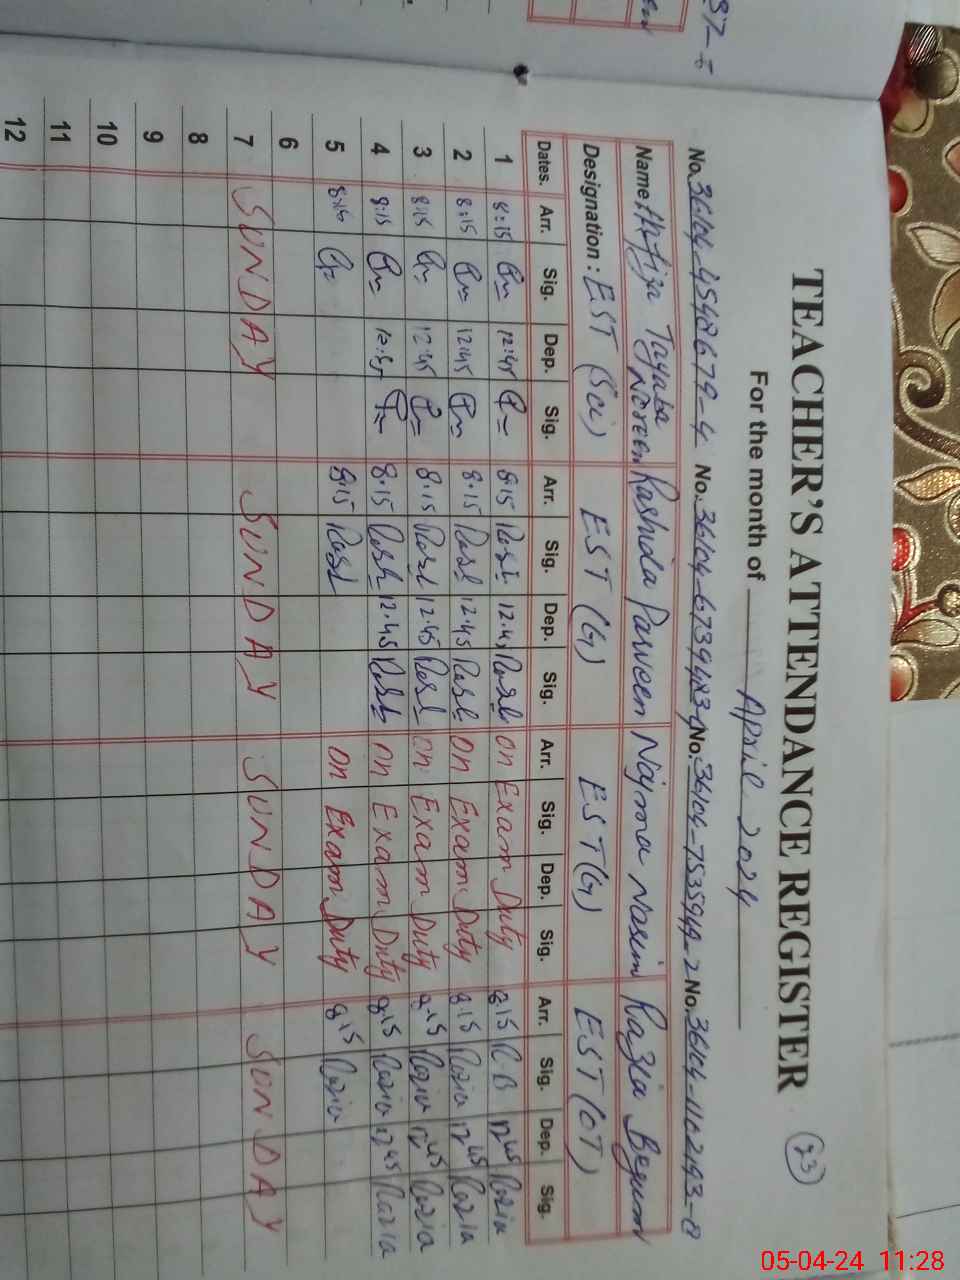 TEACHER'S ATTENDANCE REGISTER
23
For the month of April 2024
No. 36104-4548679-4 No. 36104-6739483- No. 36104-7535949-2 No. 36104-1102193-8
Name: Hafiza Tayaba Noreen Rashida Parveen Najma Nasim Razia Begum
Designation: EST (Sci) EST (G) EST (G) EST (OT)
Dates. Arr. Sig. Dep. Sig. Arr. Sig. Dep. Sig. Arr. Sig. Dep. Sig. Arr. Sig. Dep. Sig.
1 8:15 12:45 8:15 Rash 12.45 Rash on Exam Duty 8.15 R-B 12 45 Razia
2 8:15 12:45 8.15 Rash 12.45 Rash on Exam Duty 8.15 Razia 12 45 Razia
3 8:15 12:45 8.15 Rash 12.45 Rash on Exam Duty 8.15 Razia 12 45 Razia
4 8:15 12:45 8.15 Rash 12.45 Rash on Exam Duty 8.15 Razia 12 45 Razia
5 8:15 8:15 Rash on Exam Duty 8.15 Razia
6
7 SUNDAY SUNDAY SUNDAY SUNDAY
8
9
10
11
12
05-04-24 11:28